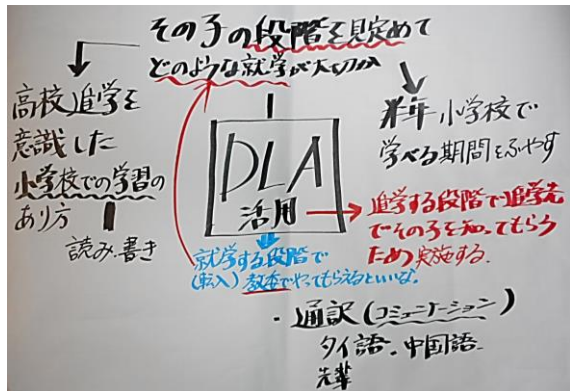 その子の段階を見定めて
どのような就学が大切か
高校進学を
意識した
小学校での学習の
あり方
読み・書き
半年 小学校で
学べる期間をふやす
DLA
活用
進学する段階で進学先
でその子を知ってもらう
ため実施する。
就学する段階で
(転入) 教委でやってもらえるといいな。
・通訳(コミュニケーション)
タイ語・中国語
先輩